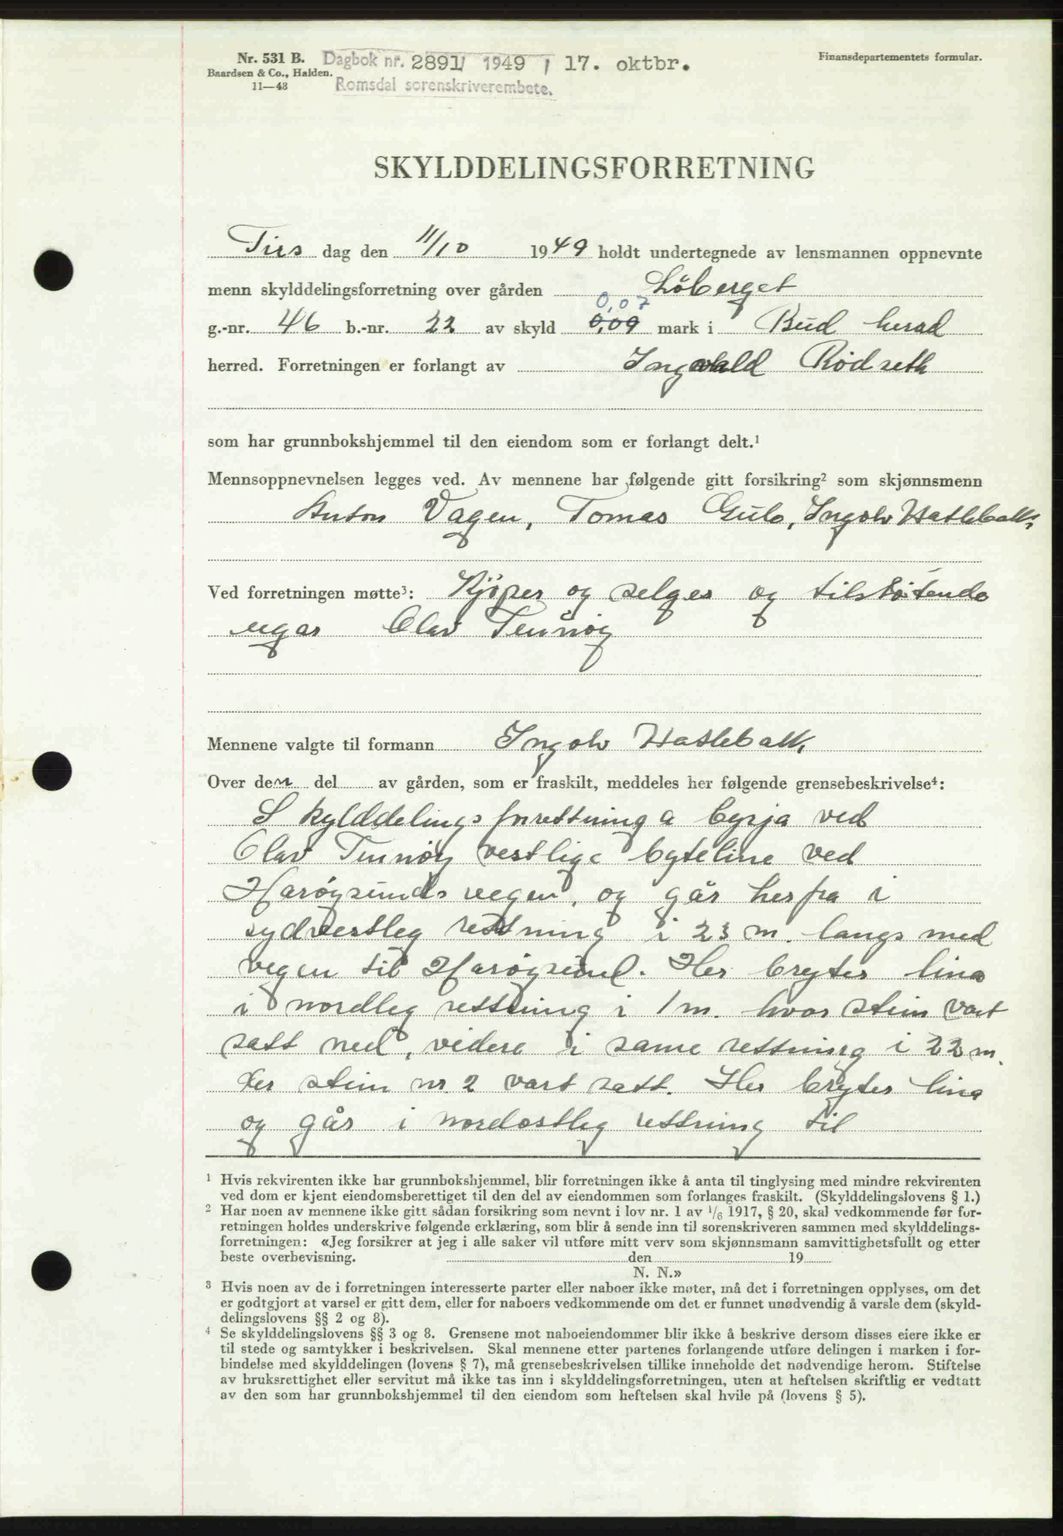 Nr. 531 B.
Baardsen & Co., Halden.
11—48
Dagbok nr. 2891/ 1949 / 17. oktbr.
Romsdal sorenskriverembete.
Finansdepartementets formular.
SKYLDDELINGSFORRETNING
Tirs dag den 11/10 1949 holdt undertegnede av lensmannen oppnevnte
menn skylddelingsforretning over gården Löberget
0,07
g.-nr. 46 b.-nr. 22 av skyld 0,09 mark i Bud herad
herred. Forretningen er forlangt av Ingvald Rödseth
som har grunnbokshjemmel til den eiendom som er forlangt delt.¹
Mennsoppnevnelsen legges ved. Av mennene har følgende gitt forsikring² som skjønnsmenn
Anton Vågen, Tomas Gule, Ingolv Hatlebakk,
Ved forretningen møtte³: Kjöper og selger og tilstöitende
eigar Olav Tennöy
Mennene valgte til formann Ingolv Hatlebakk,
Over den del av gården, som er fraskilt, meddeles her følgende grensebeskrivelse⁴:
Skylddelingsforrettninga byrja ved
Olav Tennöy vestlige byteline ved
Haröysunds vegen, og går herfra i
sydvestleg rettning i 23 m. langs med
vegen til Haröysund. Her bryter lina
i nordleg rettning i 1 m. hvor stein vart
satt ned, videre i same rettning i 22 m.
der stein nr 2 vart satt. Her bryter lina
og går i nordostleg rettning til
¹ Hvis rekvirenten ikke har grunnbokshjemmel, blir forretningen ikke å anta til tinglysing med mindre rekvirenten
ved dom er kjent eiendomsberettiget til den del av eiendommen som forlanges fraskilt. (Skylddelingslovens § 1.)
² Har noen av mennene ikke gitt sådan forsikring som nevnt i lov nr. 1 av ¹/₆ 1917, § 20, skal vedkommende før for-
retningen holdes underskrive følgende erklæring, som blir å sende inn til sorenskriveren sammen med skylddelings-
forretningen: «Jeg forsikrer at jeg i alle saker vil utføre mitt verv som skjønnsmann samvittighetsfullt og etter
beste overbevisning. den 19
N. N.»
³ Hvis noen av de i forretningen interesserte parter eller naboer ikke møter, må det i forretningen opplyses, om det
er godtgjort at varsel er gitt dem, eller for naboers vedkommende om det er funnet unødvendig å varsle dem (skyld-
delingslovens §§ 2 og 8).
⁴ Se skylddelingslovens §§ 3 og 8. Grensene mot naboeiendommer blir ikke å beskrive dersom disses eiere ikke er
til stede og samtykker i beskrivelsen. Skal mennene etter partenes forlangende utføre delingen i marken i for-
bindelse med skylddelingen (lovens § 7), må grensebeskrivelsen tillike inneholde det nødvendige herom. Stiftelse
av bruksrettighet eller servitut må ikke tas inn i skylddelingsforretningen, uten at heftelsen skriftlig er vedtatt
av den som har grunnbokshjemmel til den eiendom som heftelsen skal hvile på (lovens § 5).